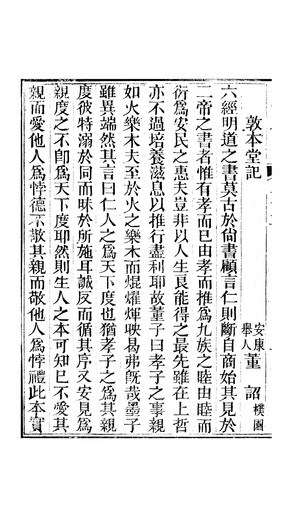 敦本堂記
安康舉人董詔樸園
六經明道之書莫古於尙書顧言仁則斷自商始其見於
二帝之書者惟有孝而已由孝而推爲九族之睦由睦而
衍爲安民之惠夫豈非以人生良能得之最先雖在上哲
亦不過培養滋息以推行盡利耶故董子曰孝子之事親
如火樂木夫至於火之樂木而焜燿煇映曷弗旣哉墨子
雖異端然其言曰仁人之爲天下度也猶孝子之爲其親
度彼特溺於同而昧於所施耳誠反而循其序又安見爲
親度之不卽爲天下度耶然則生人之本可知已不愛其
親而愛他人爲悖德不敬其親而敬他人爲悖禮此本實